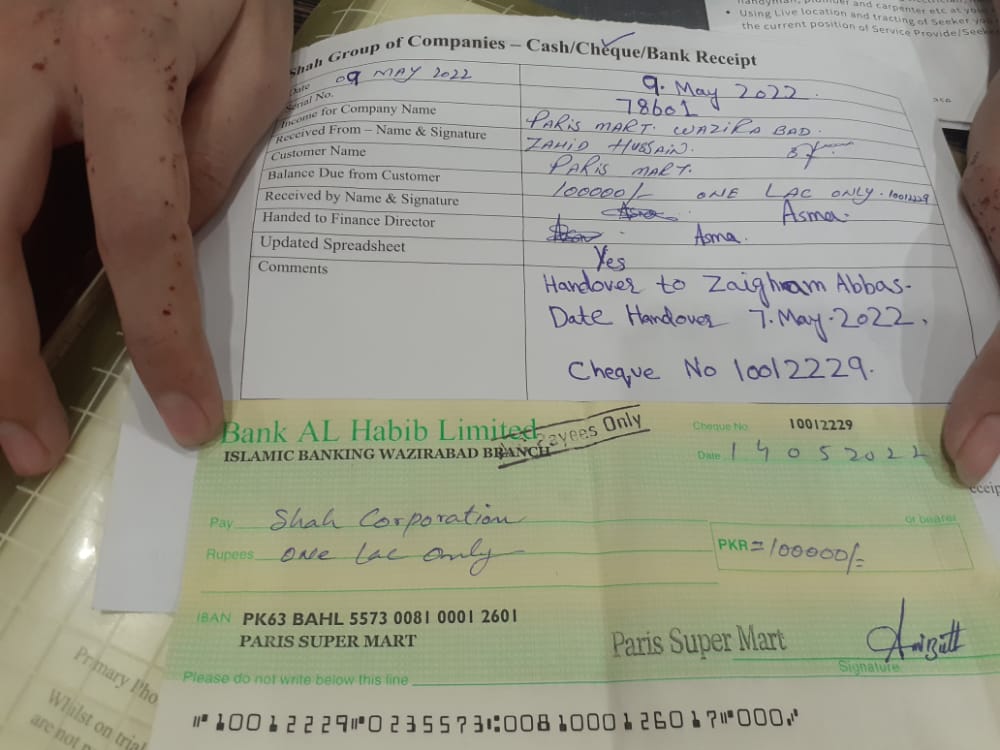 and carpenter etc at
• Using Live location and tracting of Seeker
the current position of Service Provide/Seeke
Shah Group of Companies – Cash/Cheque/Bank Receipt
Date 09 MAY 2022 9. May 2022.
Serial No. 78601
Income for Company Name PARIS MART. WAZIRA BAD.
Received From – Name & Signature ZAHID HUSSAIN.
Customer Name PARIS MART.
Balance Due from Customer 100000/- ONE LAC ONLY. 10012229
Received by Name & Signature Asma.
Handed to Finance Director Asma.
Updated Spreadsheet Yes
Comments Handover to Zaighram Abbas.
Date Handover 7. May. 2022.
Cheque No 10012229.
Bank AL Habib Limited
ayees Only
ISLAMIC BANKING WAZIRABAD BRANCH
Cheque No. 10012229
Date 14052022
Pay Shah Corporation or bearer
Rupees one Lac only PKR =100000/=
IBAN PK63 BAHL 5573 0081 0001 2601
PARIS SUPER MART
Paris Super Mart
Signature
Please do not write below this line
⑈10012229⑈0235573⑆0081000126017⑈000⑇
Primary Pho
Whilst on trial
are not